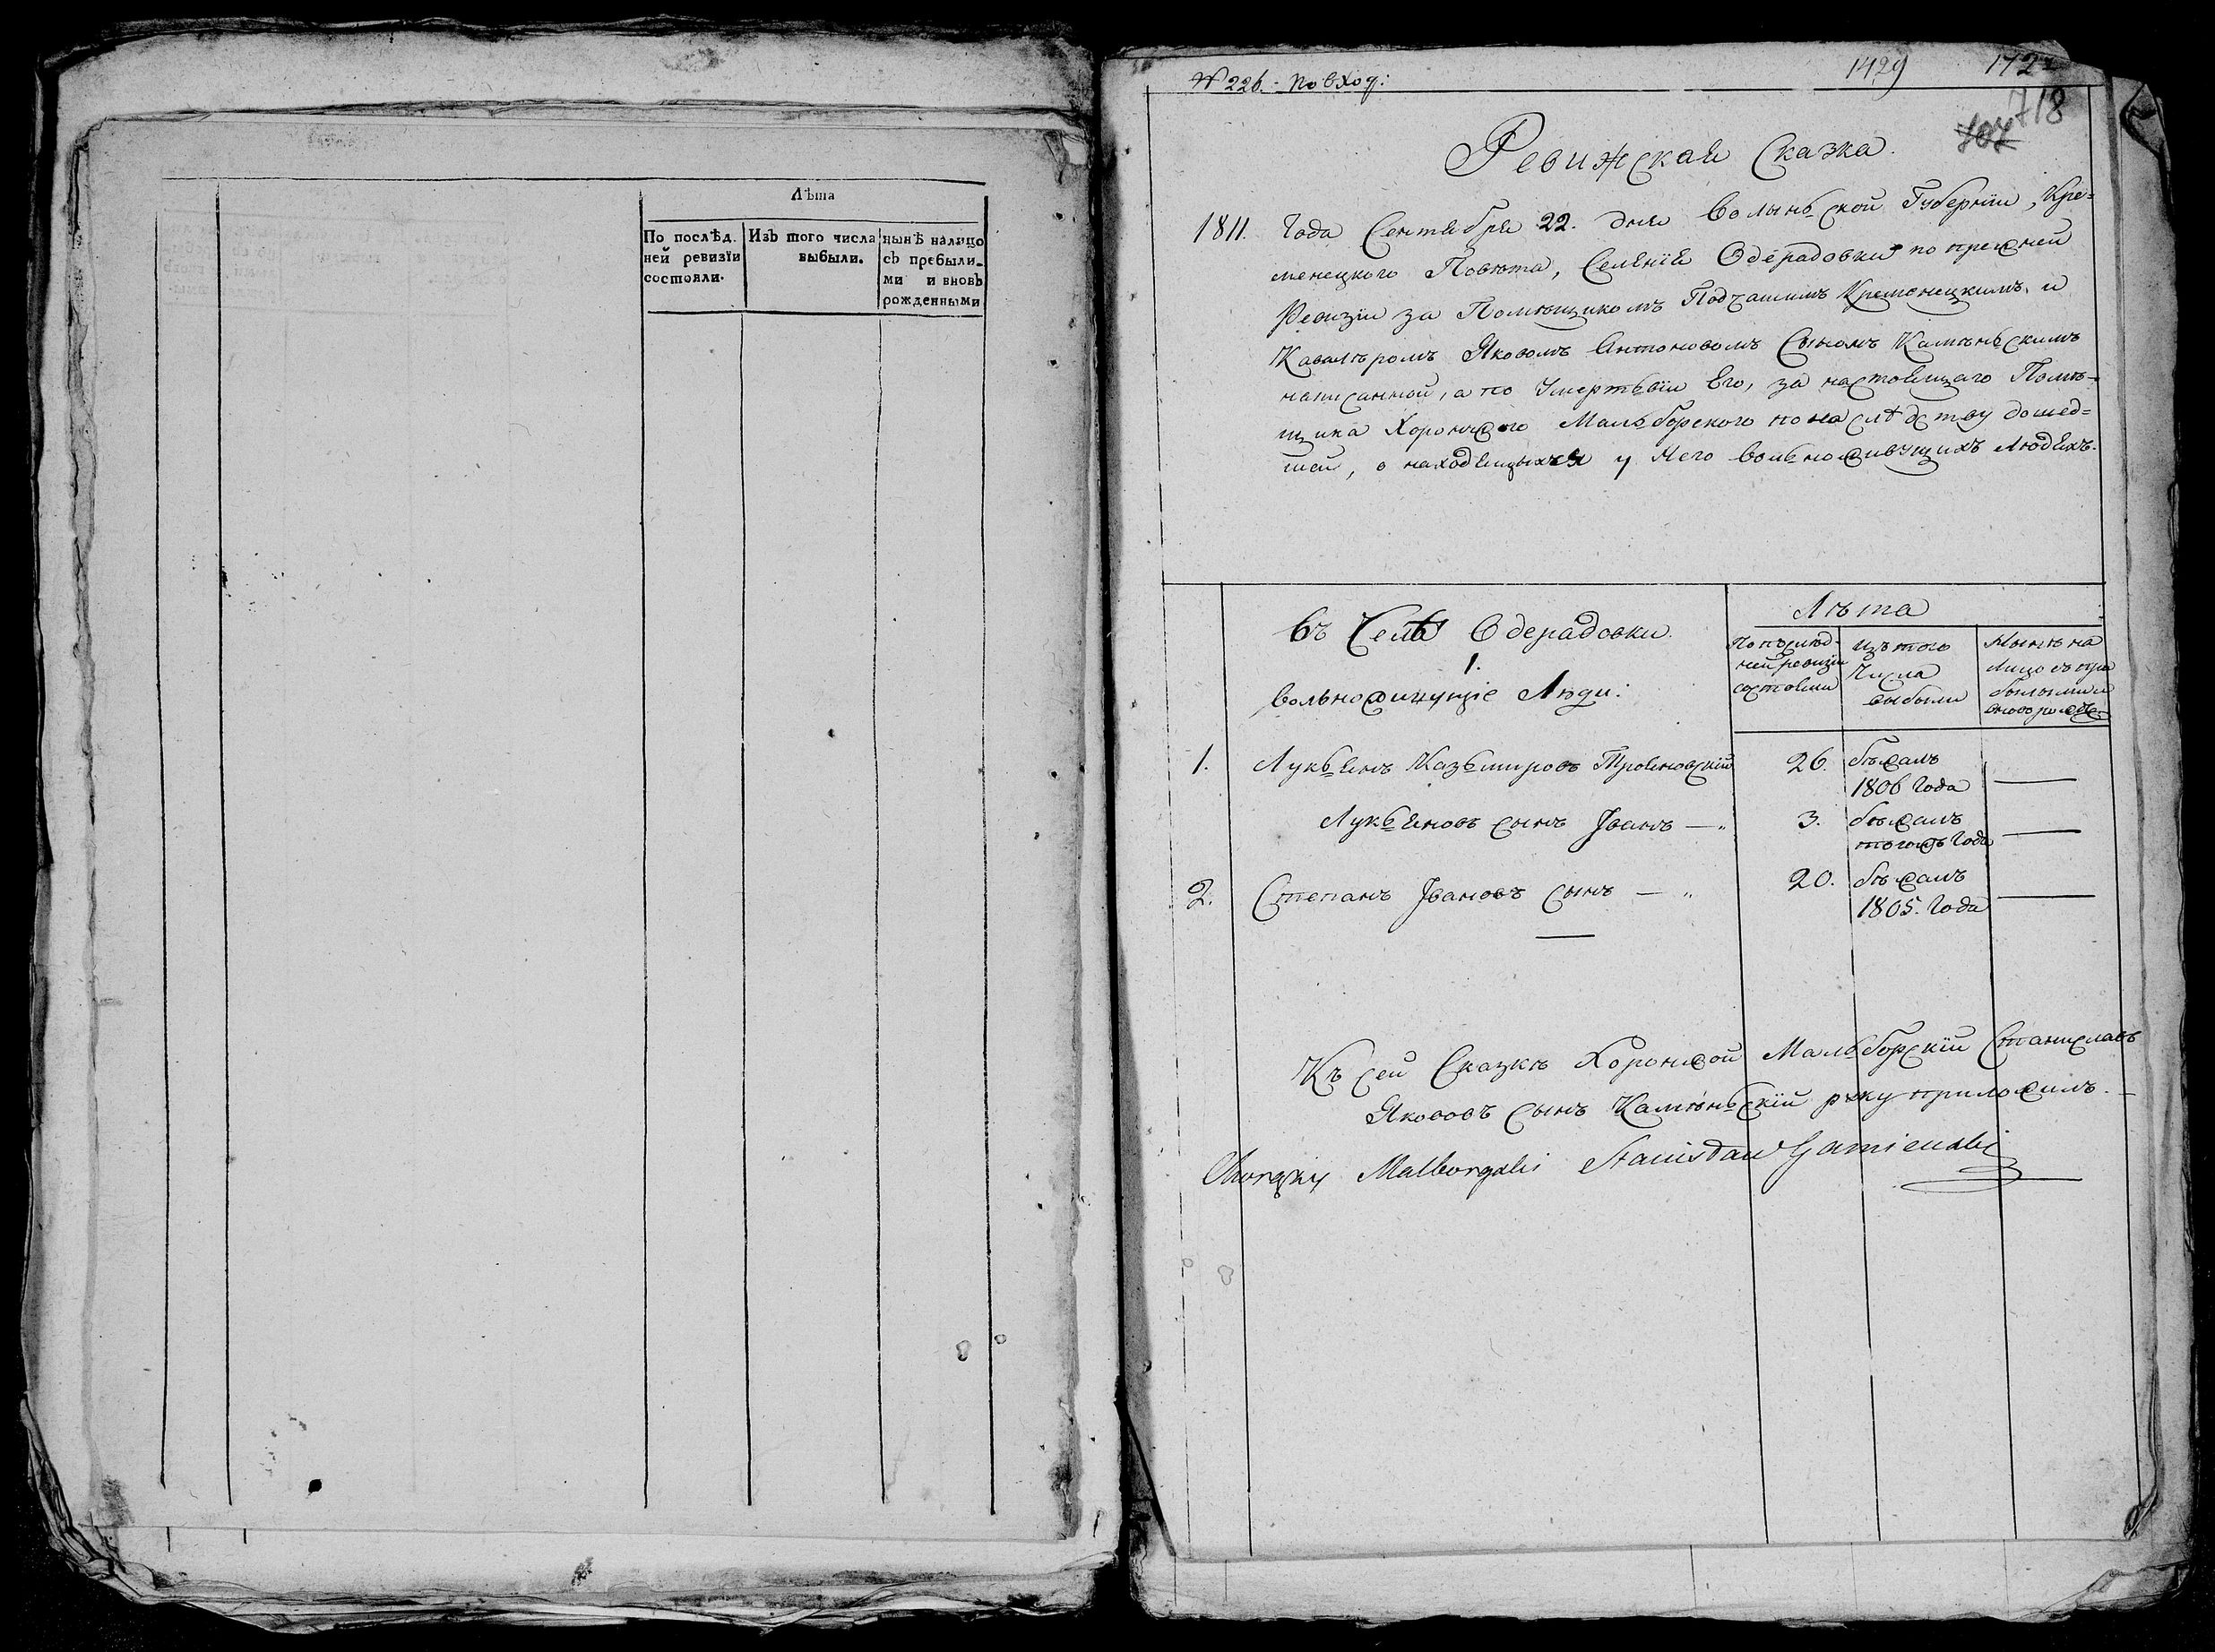 Лѣта
По послѣд. Изъ того числа нынѣ налицо
ней ревизїи выбыли. съ пребыли-
состояли. ми и вновь
рожденными
№ 226. - по вход:
1429
718
707
Ревижская Сказка.
1811. Года Сентября 22. дня Волынской Губернїи, Кре=
менецкого Повѣта, Селенїя Одерадовки по прежней
Ревизїи за Помѣщикомъ Подчашимъ Кременецкимъ и
Кавалѣромъ Яковомъ Антоновомъ Сыномъ Камѣньскимъ
написанной, а по Умертвїи Его, за настоящаго Помѣ-
щика Хоронжого Мальборского по наслѣдству дошед=
шей, о находящихся у Него вольноживущихъ Людяхъ.
Лѣта
Въ Селѣ Одерадовки.
1.
вольноживущіе Люди:
По послѣд- изъ того Нынѣ на
ней ревизїи Числа Лицо съ при
состояли выбыли былыми и
1. Лукьянъ Казьмировъ Трояновскїй 26. бѣжалъ
1806 Года —
Лукьяновъ сынъ Іванъ — „ 3. бѣжалъ
тогожъ Года —
2. Степанъ Івановъ Сынъ — „ 20. бѣжалъ
1805. Года —
Къ сей Сказкѣ Хоронжой Мальборскїй Станиславъ
Якововъ сынъ Камѣньскїй руку приложилъ. —
Chorąży Malborgski Stanisław Kamienski